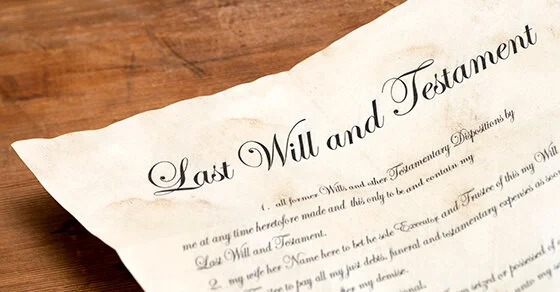 Last Will and Testament
1. all former Wills and other Testamentary Dispositions by
me at any time heretofore made and this only to be and contain my
Last Will and Testament.
2. my wife her Name here to bet he sole Executor and Trustee of this my Will
Trustee to pay all my just debts, funeral and testamentary expenses as soon
after my demise.
seized or possessed of